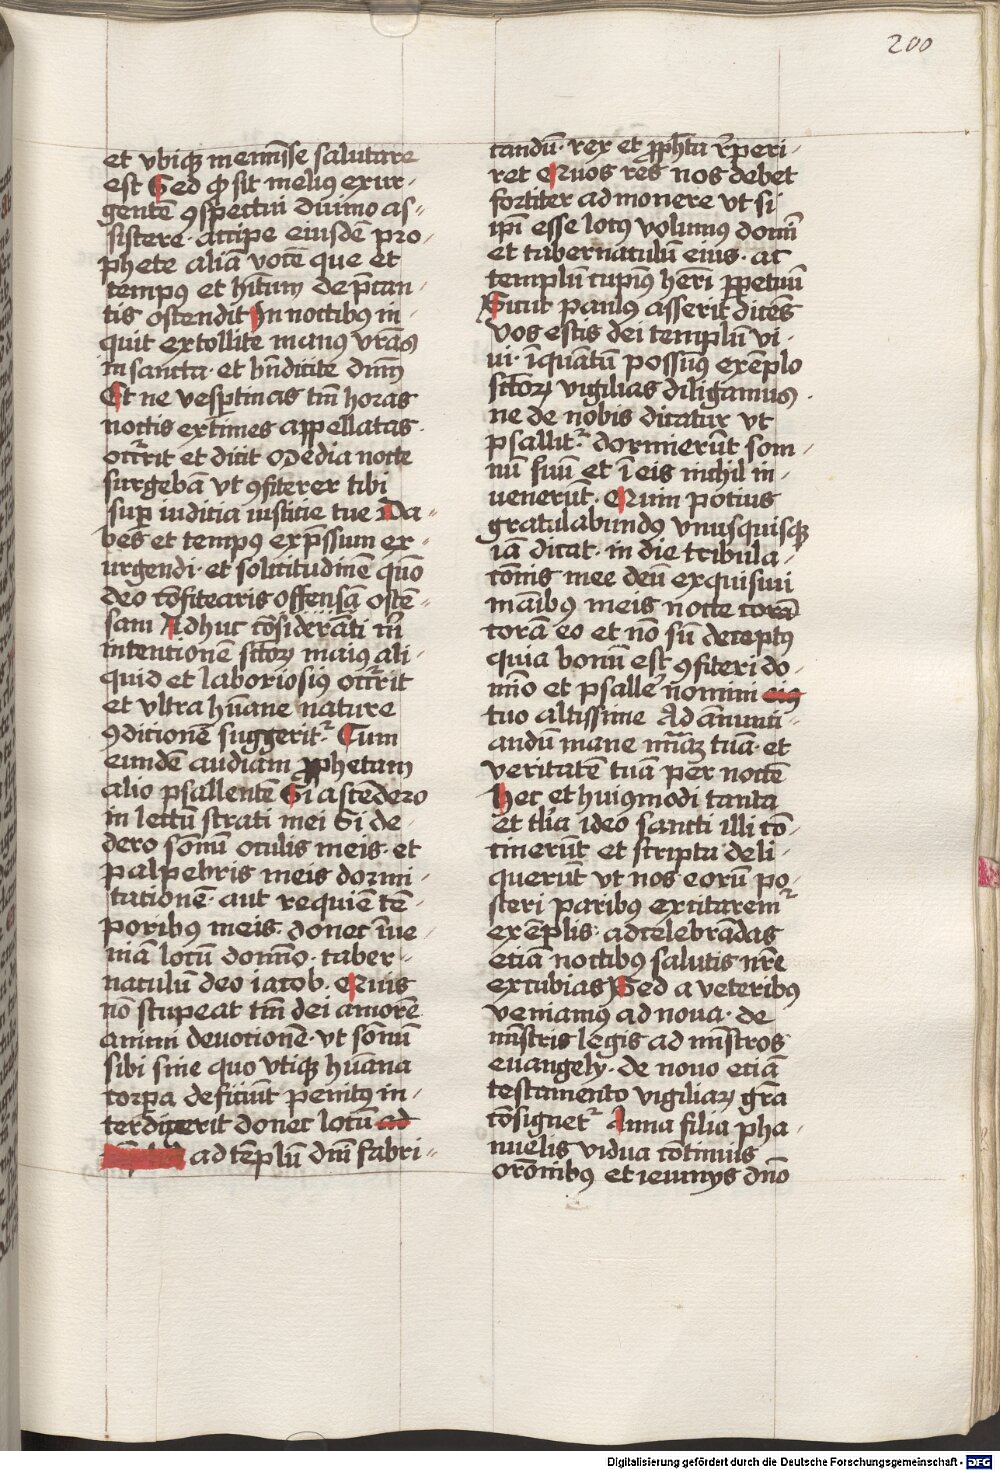 200
et vbiqꝫ meminisse salutare
est Sed ꝙ sit melius exur-
gentē ꝯspectui diuino as-
sistere. accipe eiusdē pro-
phete aliā vocē que et
tempꝰ et hītum dep̄can-
tis ostendit In noctibus in-
quit extollite manus vr̄as
in sancta. et bn̄dicite dnm̄
Et ne vesp̱tinas tm̄ horas
noctis extimes appellatas.
occr̄rit et dicit Media nocte
surgebā vt ꝯfiterer tibi
sup̱ iudicia iusticie tue Ha-
bes et tempꝰ exp̄ssum ex-
urgendi. et solicitudinē quō
deo cōfitearis offensā ostē-
sam Adhuc cōsiderāti m̄
intentionē sctōrꝫ maiꝰ ali-
quid et laboriosiꝰ occr̄rit
et vltra hūane nature
ꝯditionē suggerit᷑ Cum
eundē audiam ꝓphetam
alio psallentē Si ascēdero
in lectū strati mei Si de-
dero somnū oculis meis. et
palpebris meis dormi-
tationē. aut requiē tē-
poribus meis. donec īue-
niā locū domīo. taber-
naculū deo iacob. Quis
nō stupeat tm̄ dei amorē
animi deuotionē. vt somnū
sibi sine quo vtiqꝫ hūana
corꝑa deficiūt penitus in-
terdixerit donec locū ad
ad tēplū dnī fabri-
candū. rex et ꝓph̄ta r̄peri-
ret Quos res nos debet
fortiter admonere vt si
ipī esse locꝰ volumus domī
et tabernaculū eius. ac
templū cupimꝰ heri ꝑpetuū
Sicut paulus asserit dicēs
Vos estis dei templū vi-
ui. īquātū possumꝰ exēplo
sctōrꝫ vigilias diligamus.
ne de nobis dicatur vt
psallit᷑. dormierūt som-
nū suū et ī eis nichil in-
uenerūt. Quin potius
gratulabundꝰ vnusquisqꝫ
iā dicat. in die tribula-
cōnis mee deū exquisiui
māibꝰ meis nocte corā
corā eo et nō sū deceptꝰ
quia bonū est ꝯfiteri do-
mīo et psalle᷑ nomini eiꝰ
tuo altissime Ad ānunti-
andū mane mīāꝫ tuā. et
veritatē tuā per noctē
Hec et huiꝰmodi tanta
et tlīa ideo sancti illi cō-
cinerūt et scripta deli-
querūt vt nos eorū po-
steri paribus excitarem᷑
exēplis. ad celebrādas
etiā noctibus salutis nr̄e
excubias Sed a veteribꝰ
veniamus ad noua. de
mīstris legis ad mīstros
euangelij. de nouo etiā
testamento vigiliarꝫ grā
cōsignet᷑ Anna filia pha-
nuelis vidua cōtinuis
orōnibus et ieiunijs dnō
Digitalisierung gefördert durch die Deutsche Forschungsgemeinschaft - DFG